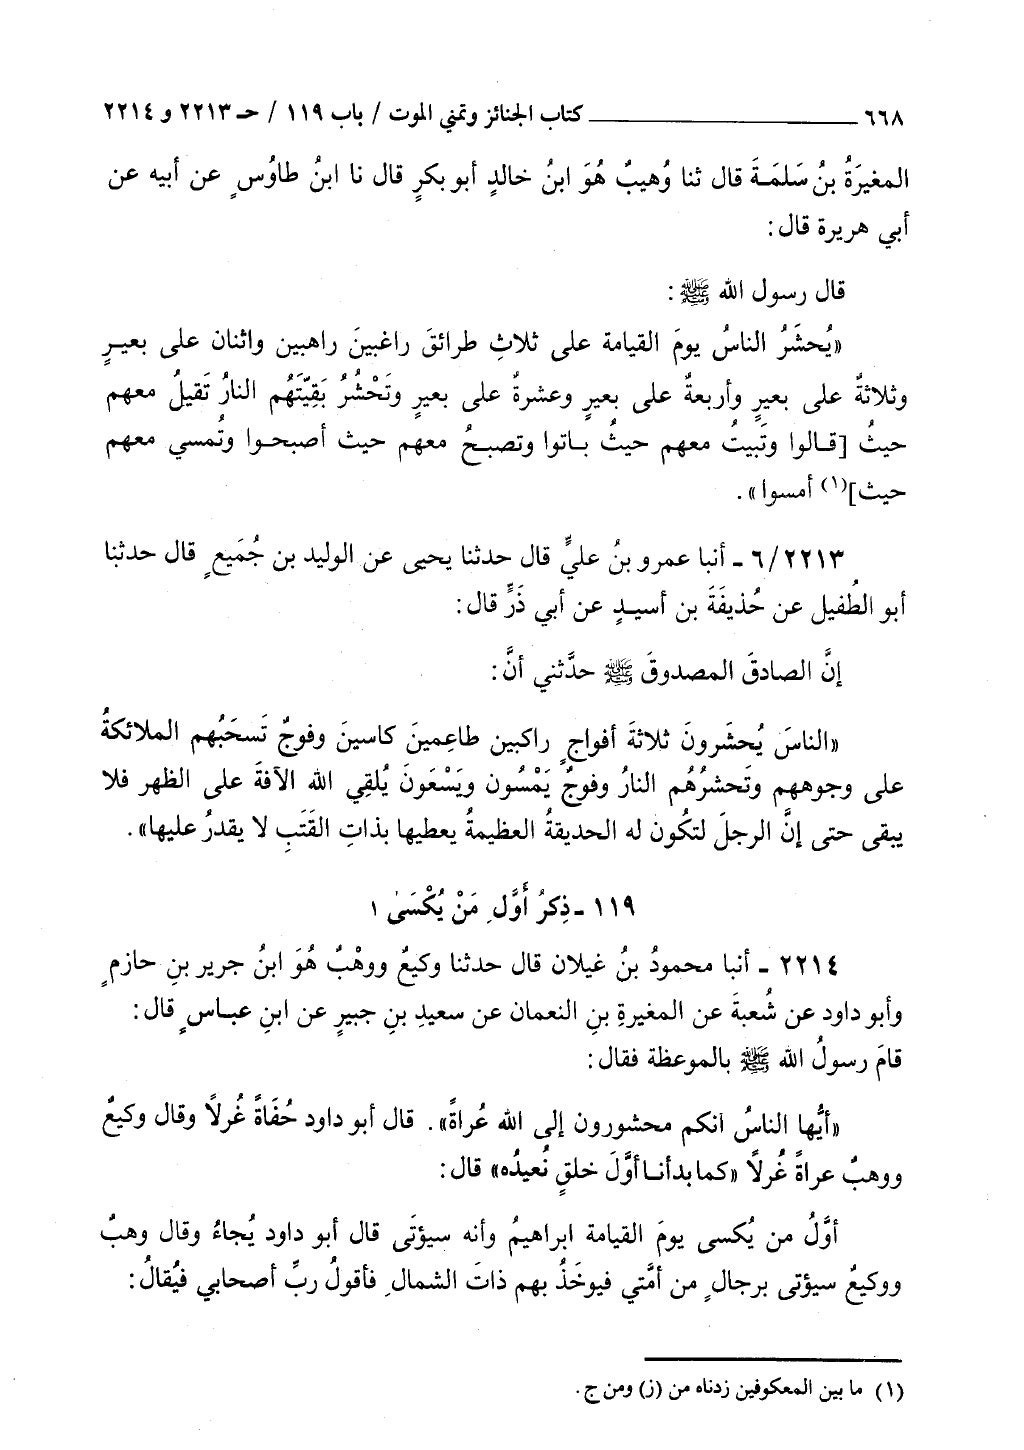 ٦٦٨ ــــــــــــــــــــ كتاب الجنائز وتمني الموت / باب ١١٩ / حـ ٢٢١٣ و ٢٢١٤
المغيرَةُ بنُ سَلمَـةَ قال ثنا وُهيبٌ هُوَ ابنُ خالدٍ أبو بكرٍ قال نا ابنُ طاوُسٍ عن أبيه عن
أبي هريرة قال:
قال رسول الله ﷺ:
«يُحشَرُ الناسُ يومَ القيامة على ثلاثِ طرائقَ راغبينَ راهبين واثنان على بعيـرٍ
وثلاثةٌ على بعيرٍ وأربعةٌ على بعيرٍ وعشرةٌ على بعيرٍ وتَحْشُرُ بَقِيّتَهُم النارُ تَقيلُ معهم
حيثُ [قـالوا وتَبيتُ معهم حيثُ بـاتوا وتصبـحُ معهم حيث أصبحـوا وتُمسي معهم
حيث](١) أمسوا».
٦/٢٢١٣ ـ أنبا عمرو بنُ عليٍّ قال حدثنا يحيى عن الوليد بن جُمَيعٍ قال حدثنا
أبو الطُفيل عن حُذيفَةَ بن أسيـدٍ عن أبي ذَرٍّ قال:
إنَّ الصادقَ المصدوقَ ﷺ حدَّثني أنَّ:
«الناسَ يُحشَرونَ ثلاثةَ أفواجٍ راكبين طاعِمينَ كاسينَ وفوجٌ تَسحَبُهم الملائكةُ
على وجوههم وتَحشرُهُم النارُ وفوجٌ يَمْسُون ويَسْعَونَ يُلقِي الله الآفةَ على الظهر فلا
يبقى حتى إنَّ الرجلَ لتكُون له الحديقةُ العظيمةُ يعطيها بذاتِ القَتَبِ لا يقدرُ عليها».
١١٩ ـ ذِكرُ أَوَّلِ مَنْ يُكْسَىٰ ١
٢٢١٤ ـ أنبا محمودُ بنُ غيلان قال حدثنا وكيعٌ ووهْبٌ هُوَ ابنُ جرير بنِ حازمٍ
وأبو داود عن شُعبةَ عن المغيرةِ بنِ النعمان عن سعيدِ بنِ جبيرٍ عن ابنِ عبـاسٍ قال:
قامَ رسولُ الله ﷺ بالموعظة فقال:
«أيُّها الناسُ انكم محشورون إلى الله عُراةً». قال أبو داود حُفَاةً غُرلًا وقال وكيعٌ
ووهبٌ عراةً غُرلًا «كما بدأنـا أوَّلَ خلقٍ نُعيدُه» قال:
أوَّلُ من يُكسى يومَ القيامة ابراهيمُ وأنه سيؤتَى قال أبو داود يُجاءُ وقال وهبٌ
ووكيعٌ سيؤتى برجالٍ من أمَّتي فيوخَذُ بهم ذاتَ الشمالِ فأقولُ ربِّ أصحابي فيُقالُ:
(١) ما بين المعكوفين زدناه من (ز) ومن ج.